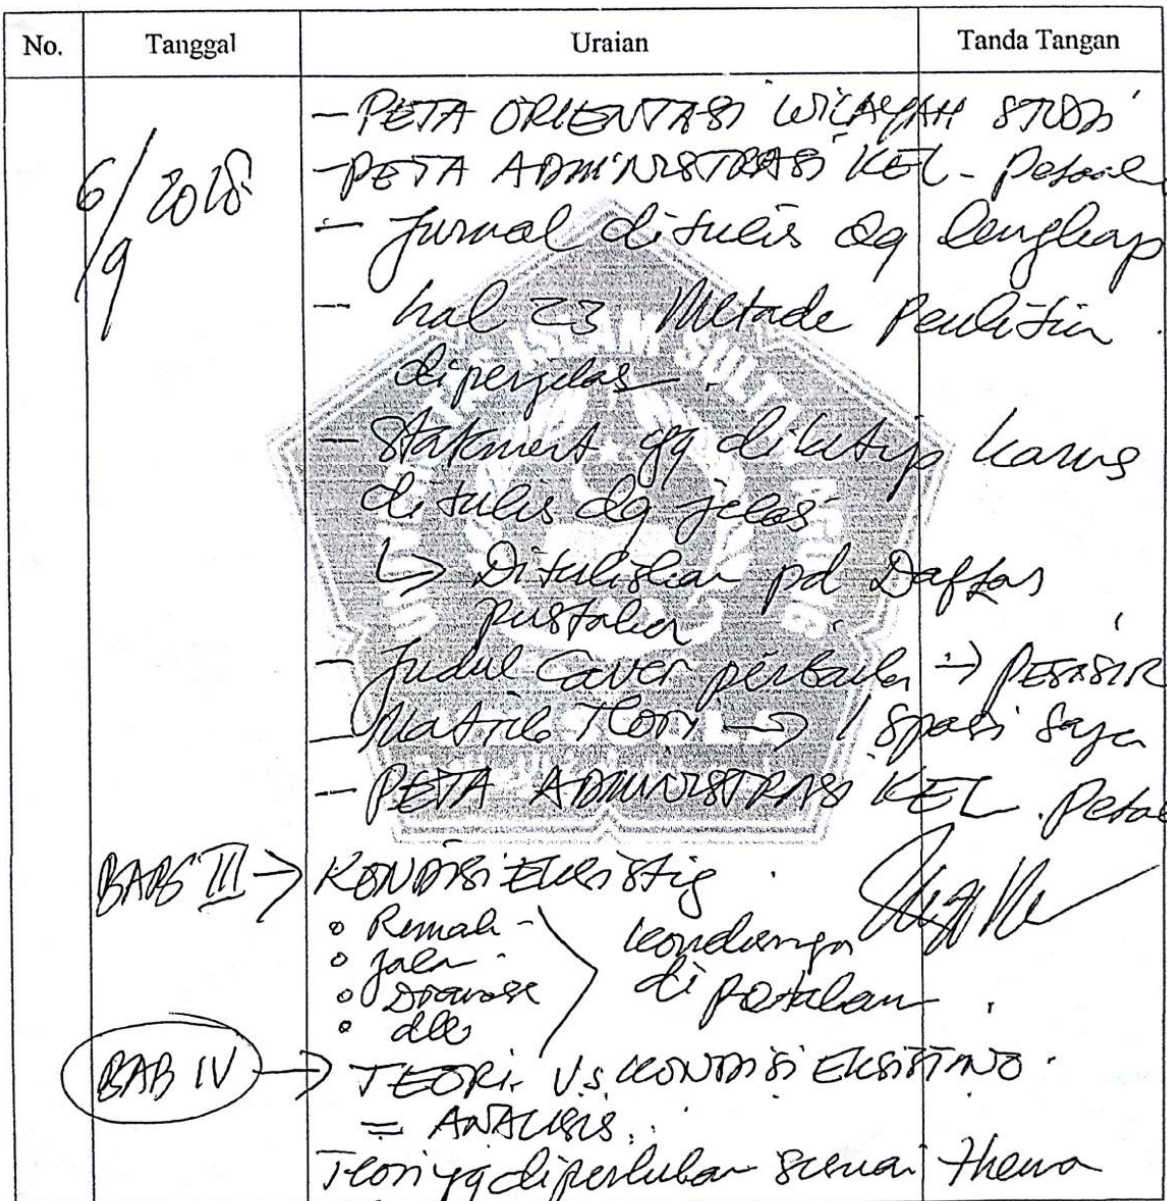 No. Tanggal Uraian Tanda Tangan
- PETA ORIENTASI WILAYAH STUDI
6/9 2018
- PETA ADMINISTRASI KEL.
- Jurnal ditulis dg lengkap
- hal 23 Metode Penelitian
diperjelas.
- Statment yg dikutip harus
ditulis dg jelas
↳ Dituliskan pd Daftar
pustaka
- Judul Cover perbaiki → PESISIR
- Matrik Teori → 1 spasi saja
- PETA ADMINISTRASI KEL.
BAB III → KONDISI EKSISTIG
• Rumah -
• Jalan -
• Drainase
• dll
kondisinya
di petakan.
BAB IV → TEORI Vs KONDISI EKSISTING.
= ANALISIS.
Teori yg diperlukan sesuai thema
UNIVERSITAS ISLAM SULTAN AGUNG
UNISSULA